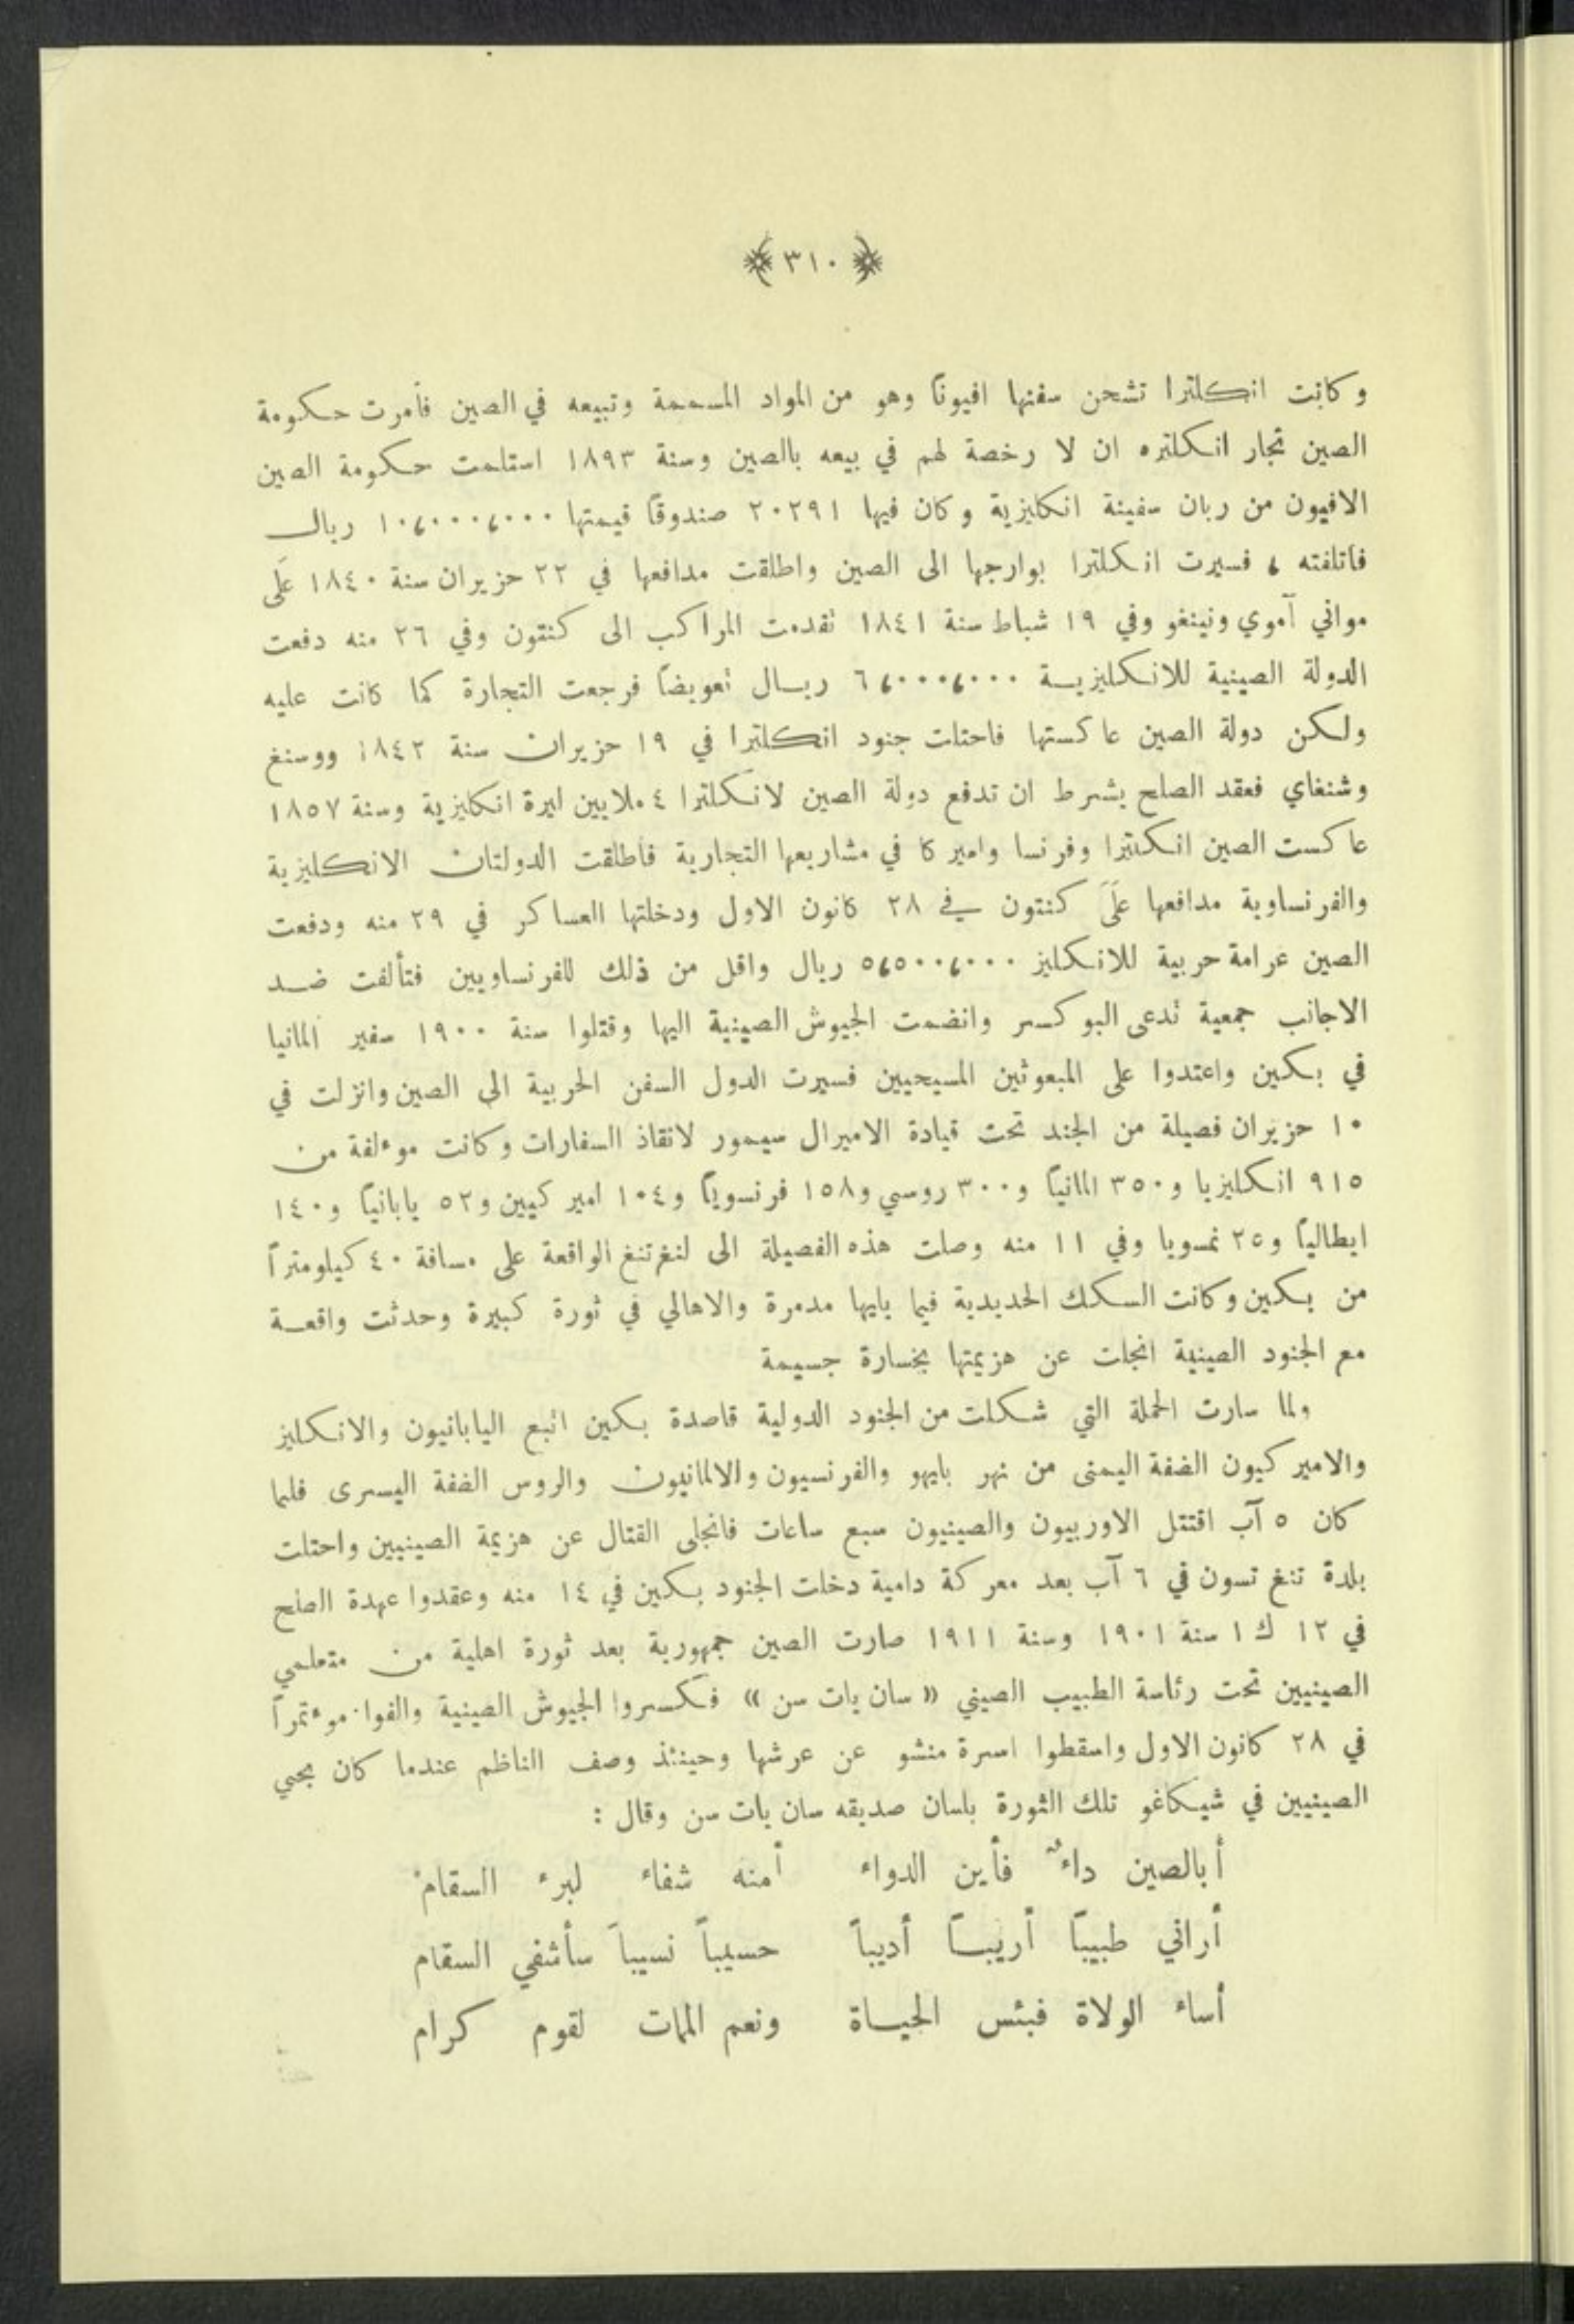 ﴿ ٣١٠ ﴾
وكانت انكلترا تشحن سفنها افيونًا وهو من المواد المسممة وتبيعه في الصين فأمرت حكومة
الصين تجار انكلتره ان لا رخصة لهم في بيعه بالصين وسنة ١٨٩٣ استلمت حكومة الصين
الافيون من ربان سفينة انكليزية وكان فيها ٢٠٢٩١ صندوقًا قيمتها ١٠،٠٠٠،٠٠٠ ريال
فاتلفته ، فسيرت انكلترا بوارجها الى الصين واطلقت مدافعها في ٢٢ حزيران سنة ١٨٤٠ عَلَى
مواني آموي ونينغو وفي ١٩ شباط سنة ١٨٤١ تقدمت المراكب الى كنتون وفي ٢٦ منه دفعت
الدولة الصينية للانكليزية ٦،٠٠٠،٠٠٠ ريال تعويضًا فرجعت التجارة كما كانت عليه
ولكن دولة الصين عاكستها فاحتلت جنود انكلترا في ١٩ حزيران سنة ١٨٤٢ ووسنغ
وشنغاي فعقد الصلح بشرط ان تدفع دولة الصين لانكلترا ٤ ملايين ليرة انكليزية وسنة ١٨٥٧
عاكست الصين انكلترا وفرنسا واميركا في مشاريعها التجارية فاطلقت الدولتان الانكليزية
والفرنساوية مدافعها عَلَى كنتون في ٢٨ كانون الاول ودخلتها العساكر في ٢٩ منه ودفعت
الصين غرامة حربية للانكليز ٥،٥٠٠،٠٠٠ ريال واقل من ذلك للفرنساويين فتألفت ضد
الاجانب جمعية تدعى البوكسر وانضمت الجيوش الصينية اليها وقتلوا سنة ١٩٠٠ سفير المانيا
في بكين واعتدوا على المبعوثين المسيحيين فسيرت الدول السفن الحربية الى الصين وانزلت في
١٠ حزيران فصيلة من الجند تحت قيادة الاميرال سيمور لانقاذ السفارات وكانت موءلفة من
٩١٥ انكليزيا و٣٥٠ المانيًا و٣٠٠ روسي و١٥٨ فرنسويًا و١٠٤ اميركيين و٥٢ يابانيًا و١٤٠
ايطاليًا و٢٥ نمسويا وفي ١١ منه وصلت هذه الفصيلة الى لنغ تنغ الواقعة على مسافة ٤٠ كيلومترًا
من بكين وكانت السكك الحديدية فيما يليها مدمرة والاهالي في ثورة كبيرة وحدثت واقعة
مع الجنود الصينية انجلت عن هزيمتها بخسارة جسيمة
ولما سارت الحملة التي شكلت من الجنود الدولية قاصدة بكين اتبع اليابانيون والانكليز
والاميركيون الضفة اليمنى من نهر بايهو والفرنسيون والالمانيون والروس الضفة اليسرى فلما
كان ٥ آب اقتتل الاوربيون والصينيون سبع ساعات فانجلى القتال عن هزيمة الصينيين واحتلت
بلدة تنغ تسون في ٦ آب بعد معركة دامية دخلت الجنود بكين في ١٤ منه وعقدوا عهدة الصلح
في ١٢ ك ١ سنة ١٩٠١ وسنة ١٩١١ صارت الصين جمهورية بعد ثورة اهلية من متعلمي
الصينيين تحت رئاسة الطبيب الصيني « سان يات سن » فكسروا الجيوش الصينية والفوا موءتمرًا
في ٢٨ كانون الاول واسقطوا اسرة منشو عن عرشها وحينئذ وصف الناظم عندما كان بحي
الصينيين في شيكاغو تلك الثورة بلسان صديقه سان يات سن وقال :
أبالصين داءٌ فأين الدواء أمنه شفاء لبرء السقام
أراني طبيبًا أريبًا أديبًا حسيبًا نسيبًا سأشفي السقام
أساء الولاة فبئس الحياة ونعم الممات لقوم كرام